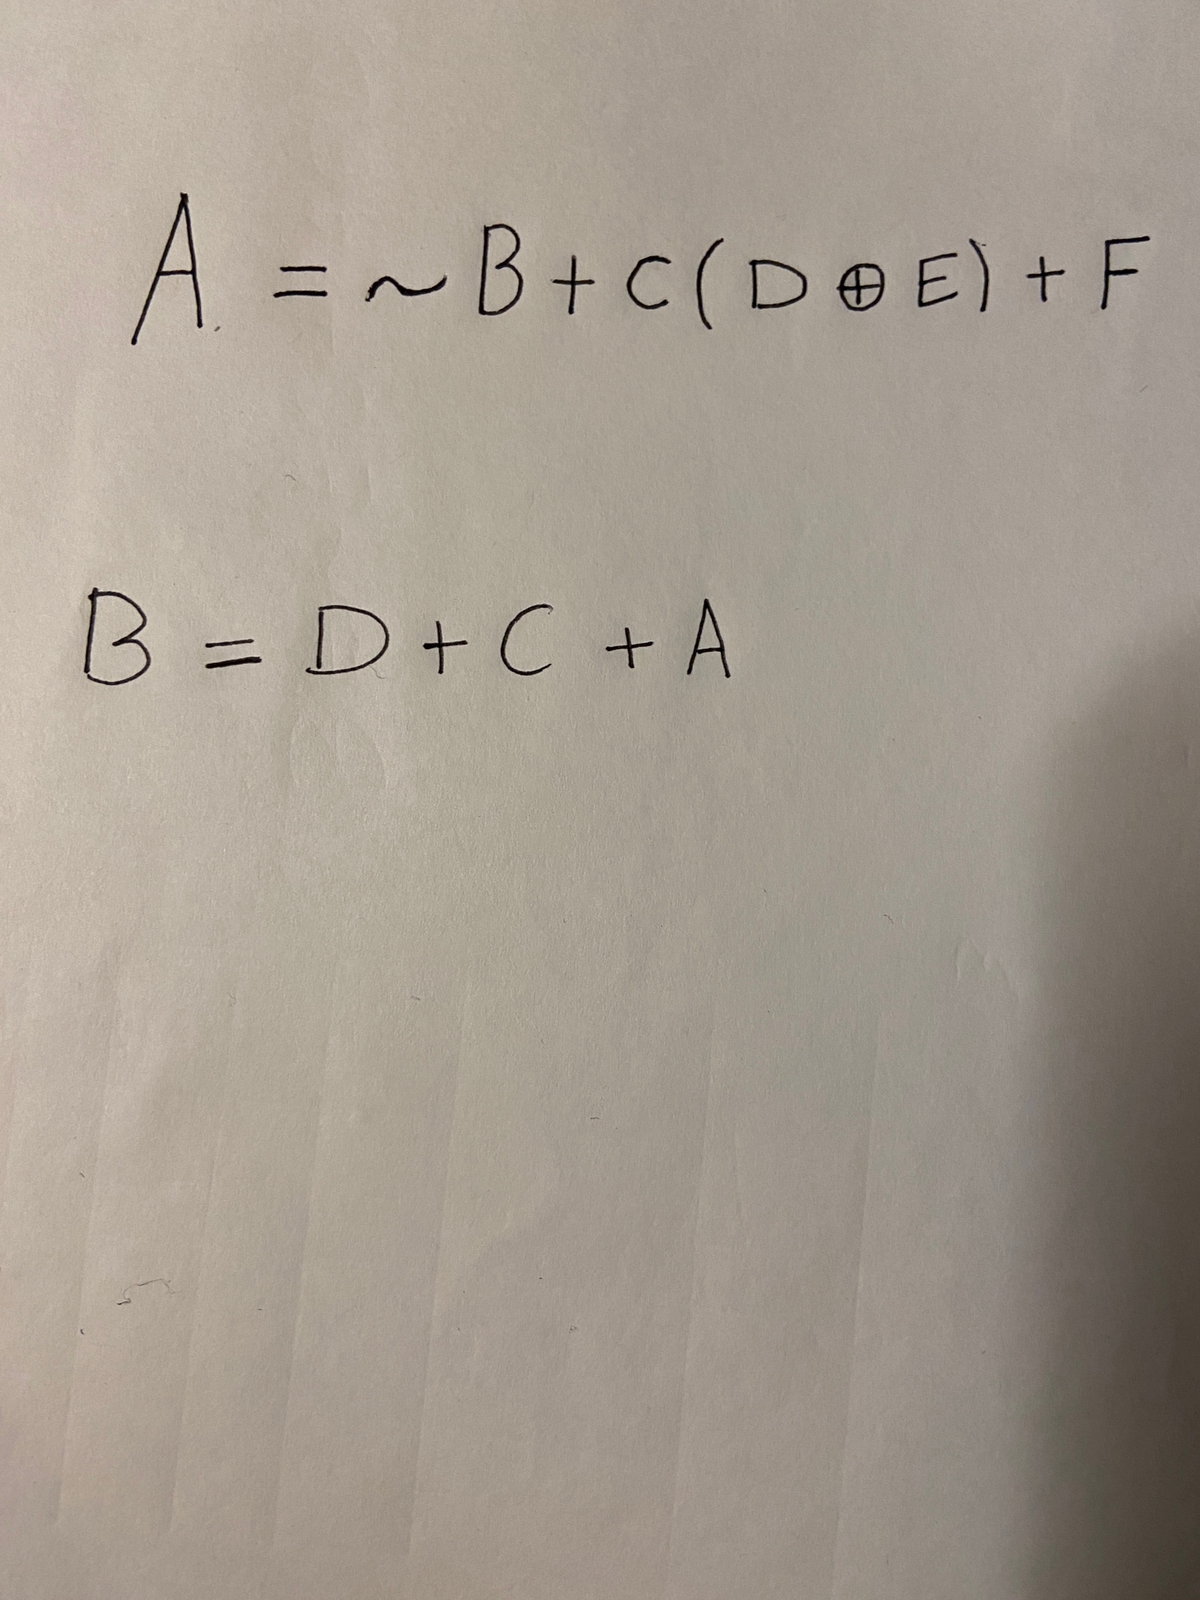 A = ~B + C(D ⊕ E) + F
B = D + C + A